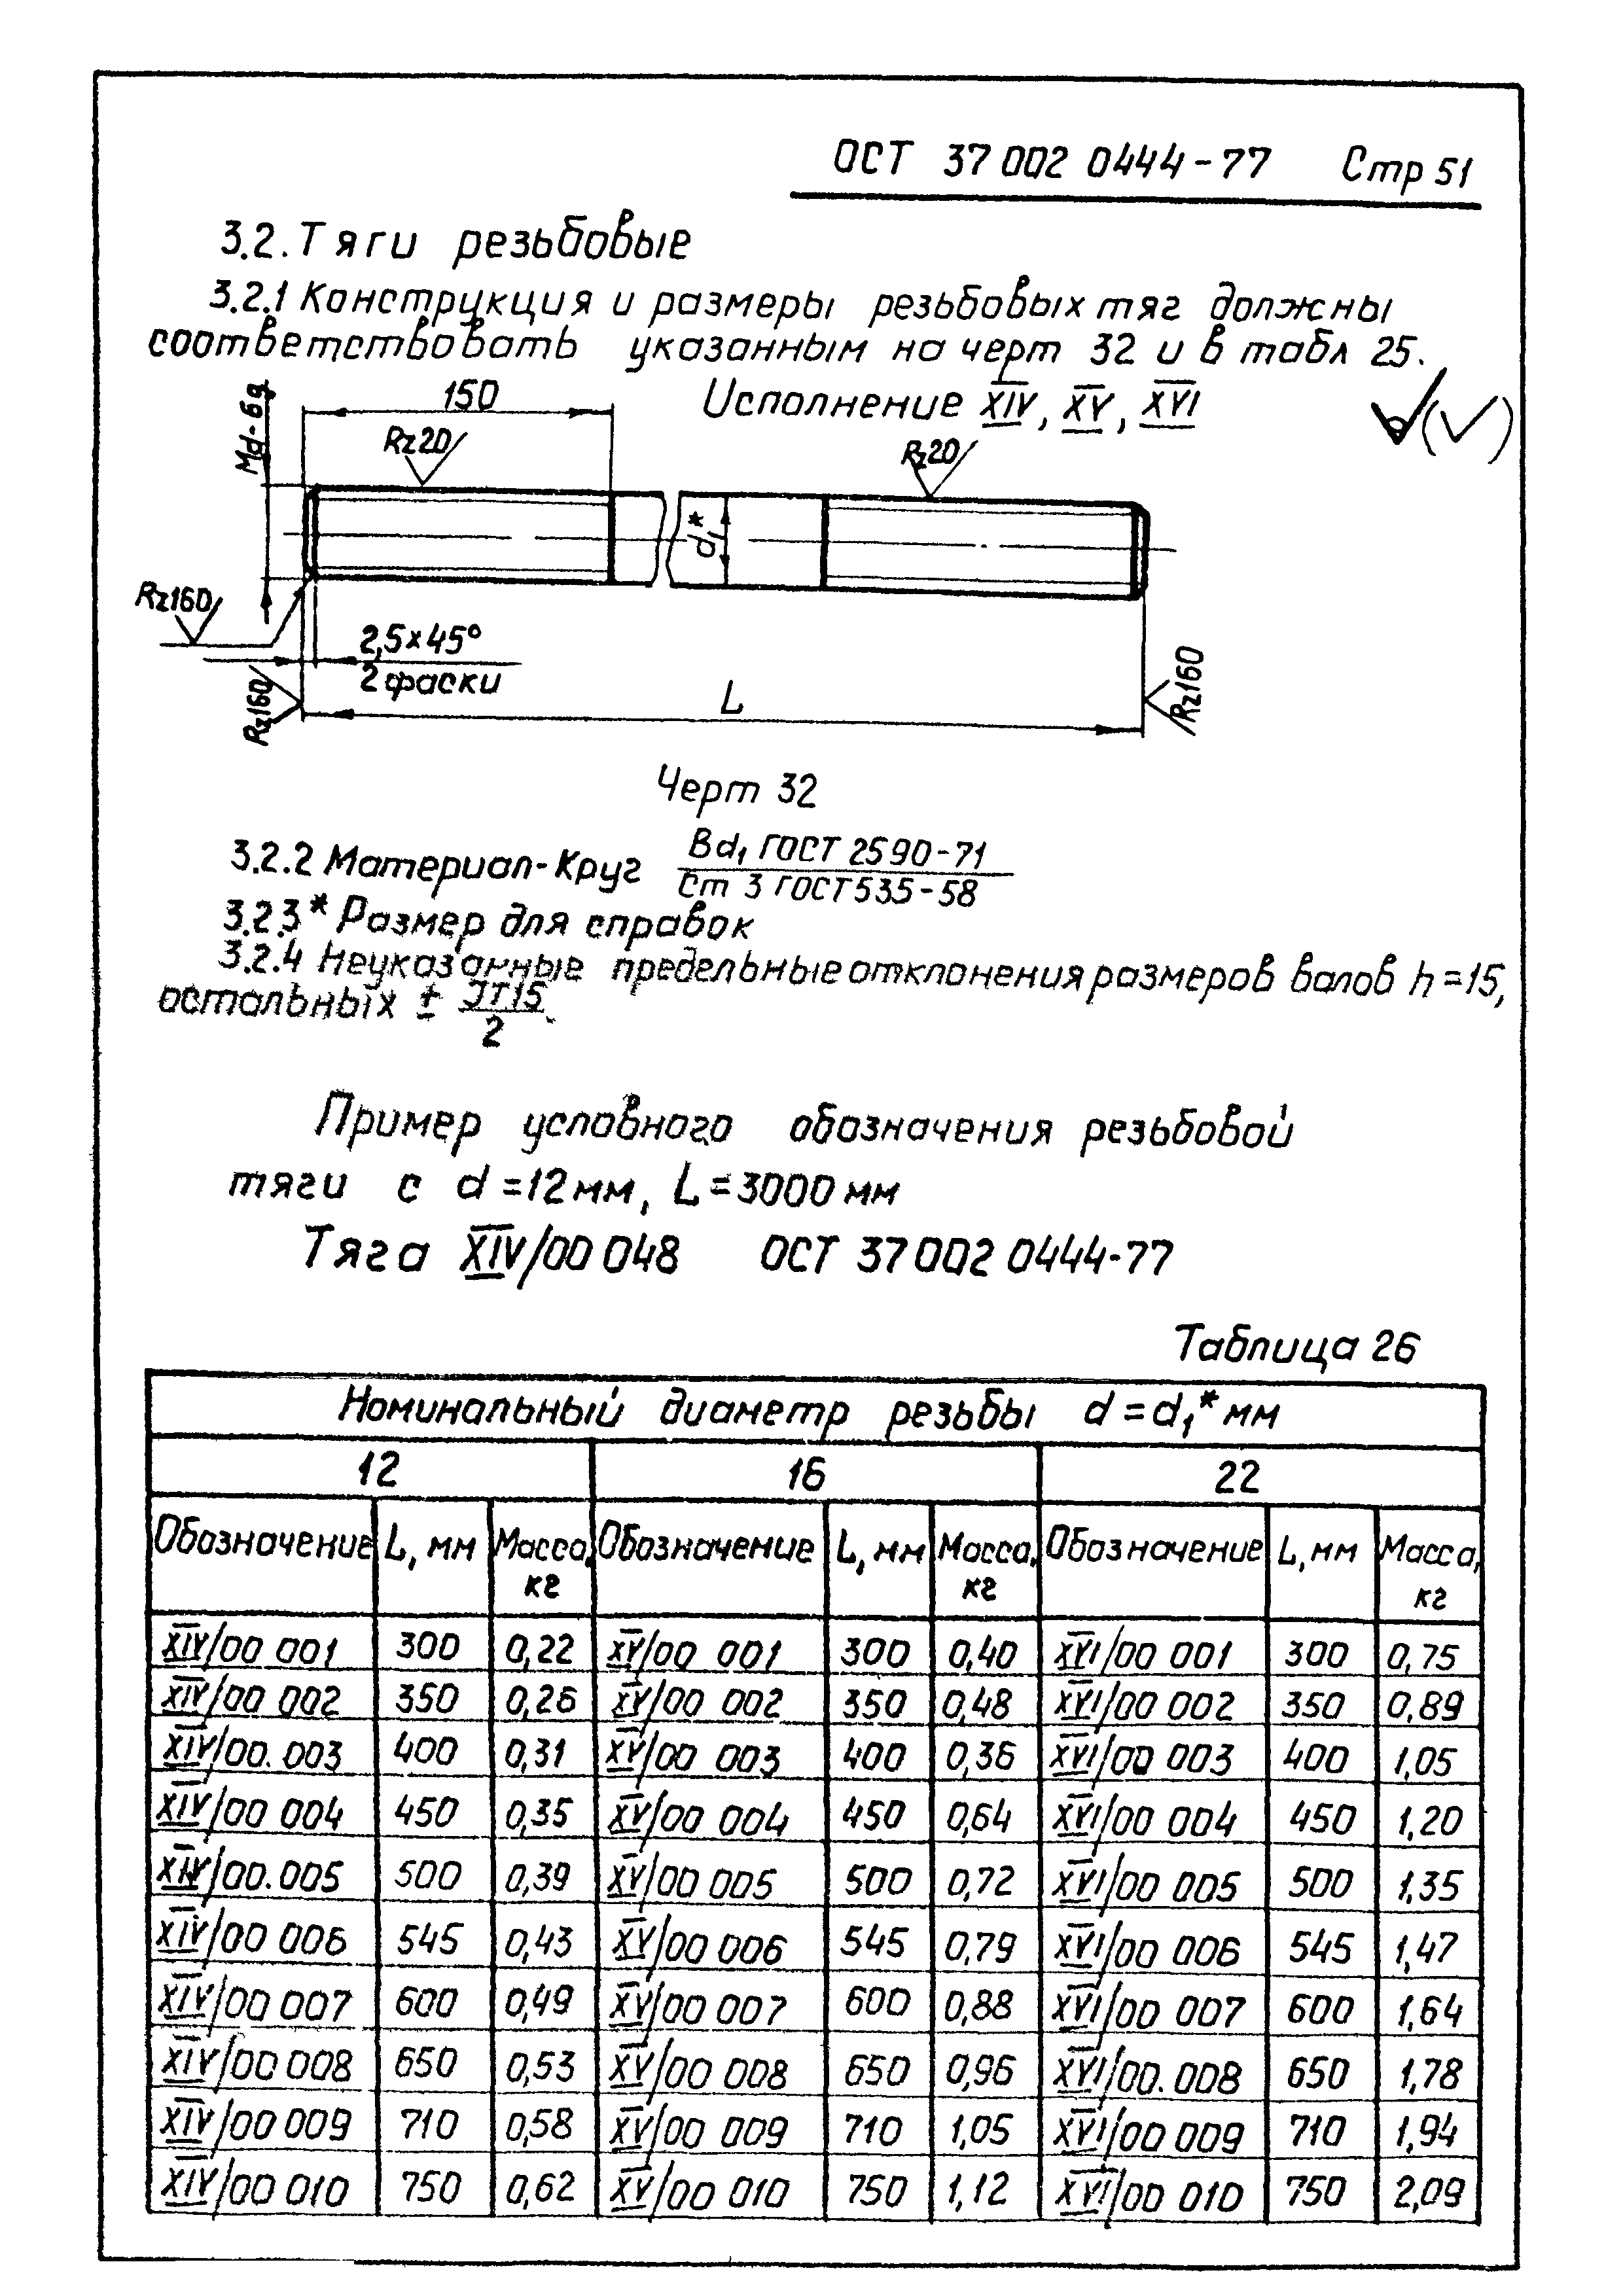 ОСТ 37 002 0444-77 Стр 51
3.2. Тяги резьбовые
3.2.1 Конструкция и размеры резьбовых тяг должны
соответствовать указанным на черт 32 и в табл 25.
Исполнение XIV, XV, XVI
150
Md-6g
Rz20
Rz20
d1*
Rz160
2,5×45°
2 фаски
Rz160
L
Rz160
Черт 32
3.2.2 Материал-Круг Вd1 ГОСТ 2590-71
Ст 3 ГОСТ 535-58
3.2.3* Размер для справок
3.2.4 Неуказанные предельные отклонения размеров валов h=15,
остальных ± JT15
2
Пример условного обозначения резьбовой
тяги с d=12мм, L=3000 мм
Тяга XIV/00 048 ОСТ 37 002 0444-77
Таблица 26
Номинальный диаметр резьбы d=d1* мм
12 16 22
Обозначение L, мм Масса, кг Обозначение L, мм Масса, кг Обозначение L, мм Масса, кг
XIV/00 001 300 0,22 XV/00 001 300 0,40 XVI/00 001 300 0,75
XIV/00 002 350 0,26 XV/00 002 350 0,48 XVI/00 002 350 0,89
XIV/00.003 400 0,31 XV/00 003 400 0,36 XVI/00 003 400 1,05
XIV/00 004 450 0,35 XV/00 004 450 0,64 XVI/00 004 450 1,20
XIV/00.005 500 0,39 XV/00 005 500 0,72 XVI/00 005 500 1,35
XIV/00 006 545 0,43 XV/00 006 545 0,79 XVI/00 006 545 1,47
XIV/00 007 600 0,49 XV/00 007 600 0,88 XVI/00 007 600 1,64
XIV/00 008 650 0,53 XV/00 008 650 0,96 XVI/00.008 650 1,78
XIV/00 009 710 0,58 XV/00 009 710 1,05 XVI/00 009 710 1,94
XIV/00 010 750 0,62 XV/00 010 750 1,12 XVI/00 010 750 2,09